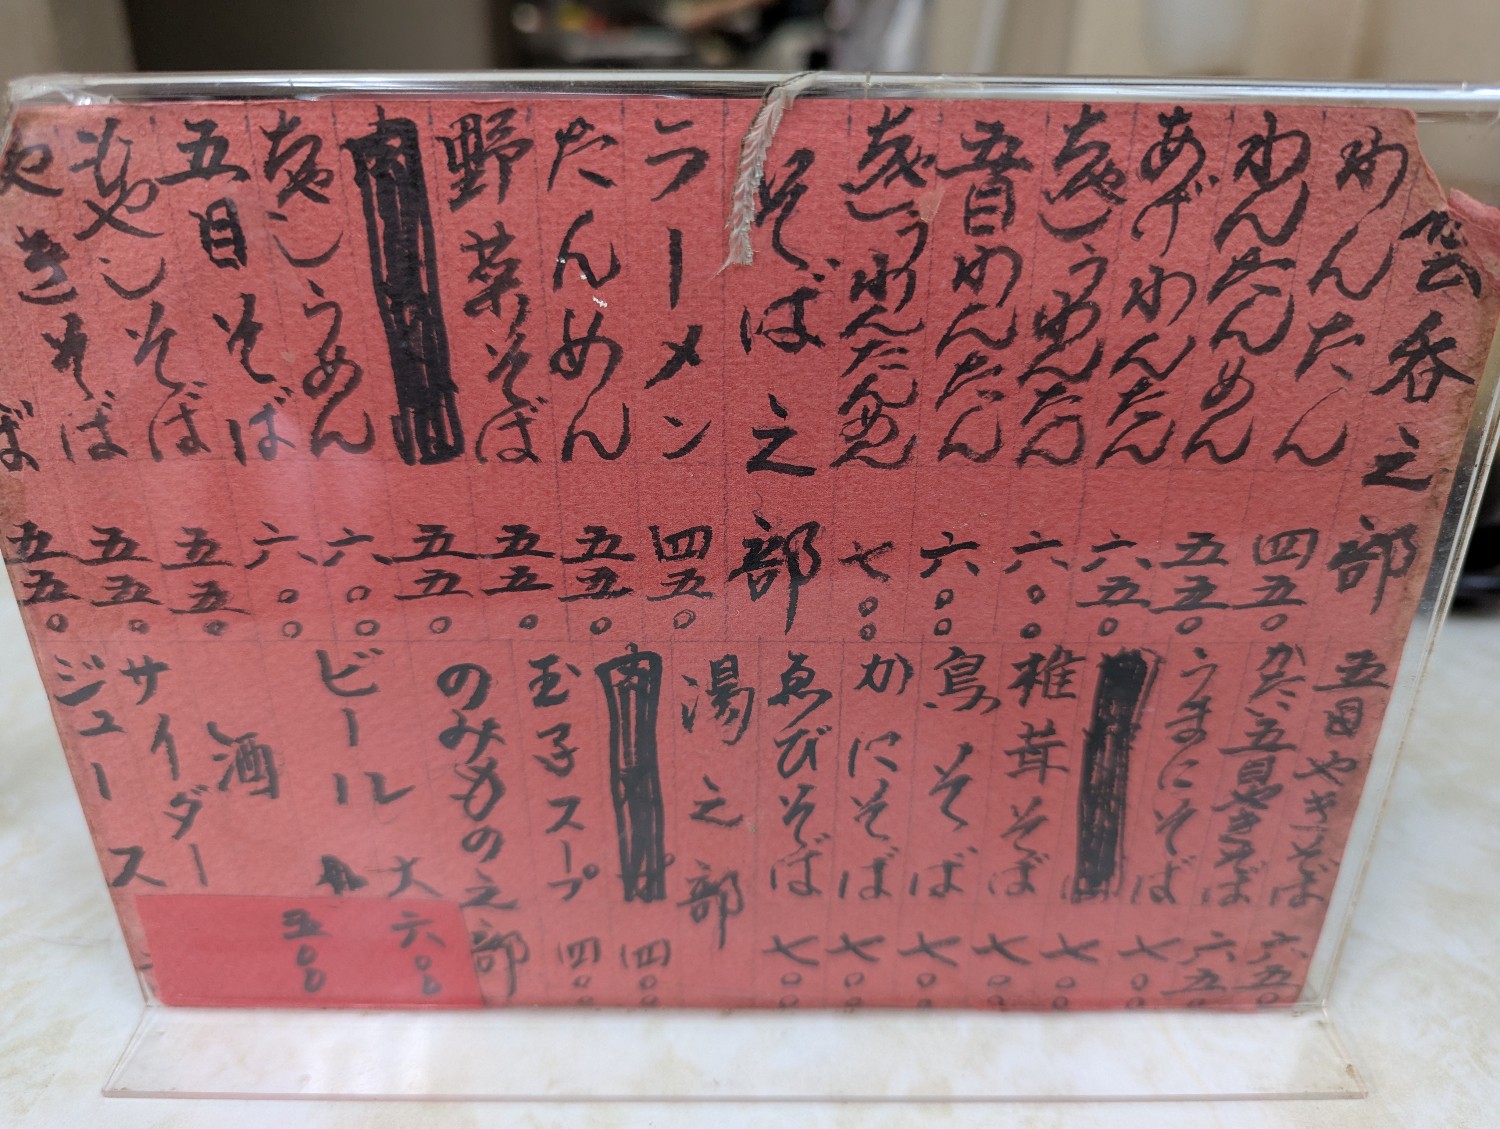 雲呑之部
わんたん 四五〇
わんたんめん 五五〇
あげわんたん 六五〇
ちゃしうわんたん 六〇〇
五目わんたん 六〇〇
ちゃしうわんたんめん 七〇〇
そば之部
ラーメン 四五〇
たんめん 五五〇
野菜そば 五五〇
五五〇
ちゃしうめん 六〇〇
五目そば 六〇〇
もやしそば 五五〇
やきそば 五五〇
そば 五五〇
五目やきそば 六五〇
かた五目やきそば 六五〇
うまにそば 七〇〇
七〇〇
椎茸そば 七〇〇
鳥そば 七〇〇
かにそば 七〇〇
ゑびそば 七〇〇
湯之部
肉 四〇〇
玉子スープ 四〇〇
のみもの之部
ビール 大 六〇〇
五〇〇
酒
サイダー
ジュース